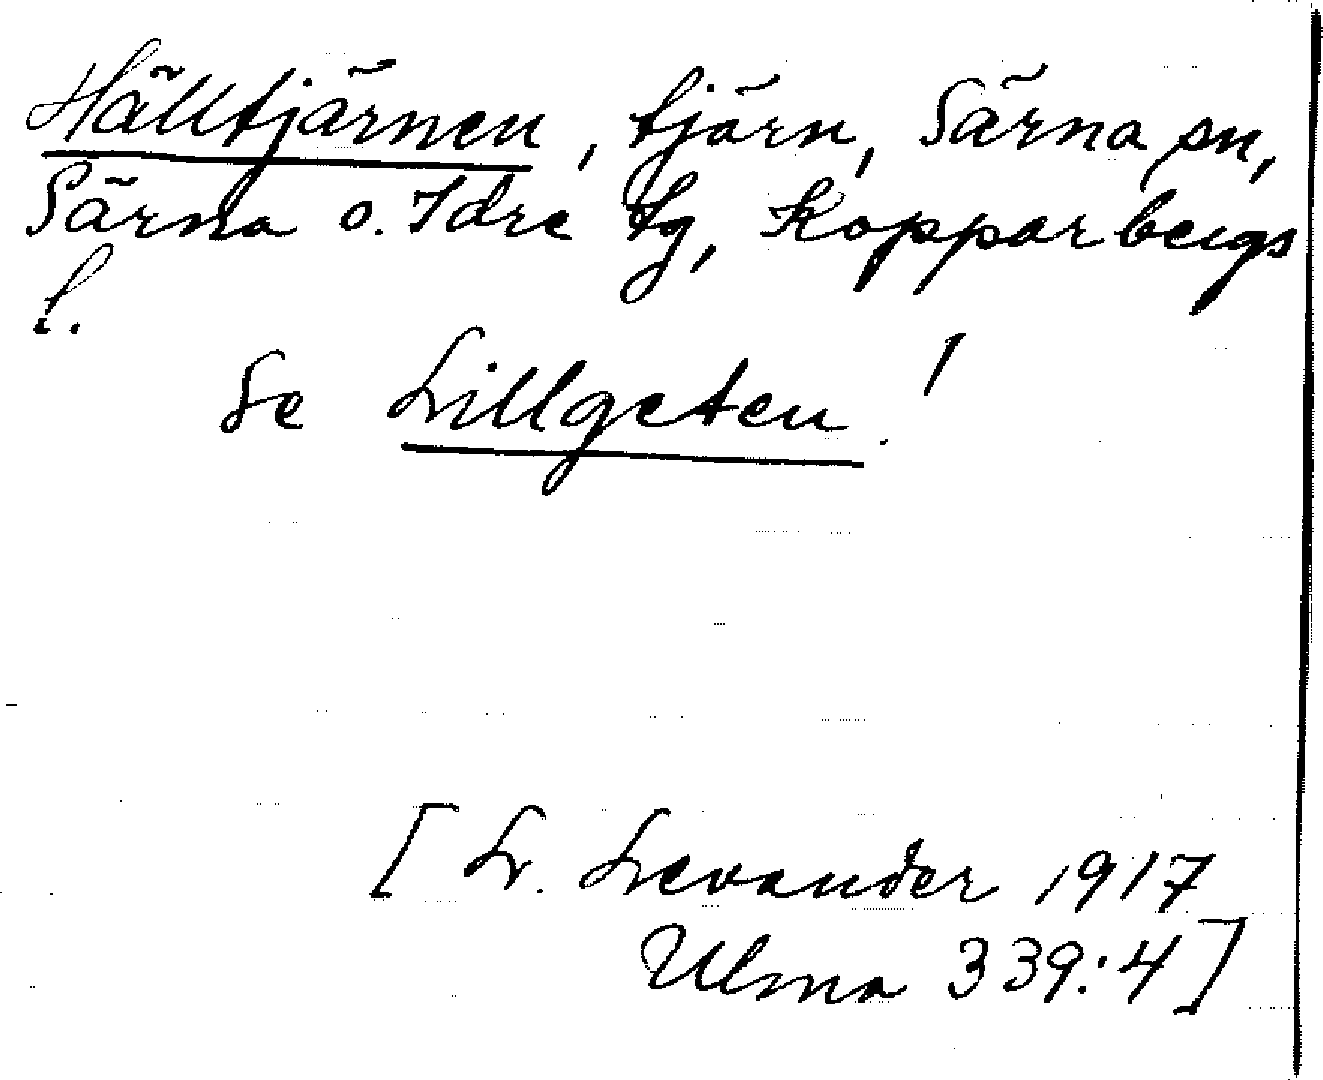 Hälltjärnen, tjärn, Särna sn,
Särna o. Idre tg, Kopparbergs
l.
Se Lillgeten!
[L. Levander 1917
Ulma 339:4]